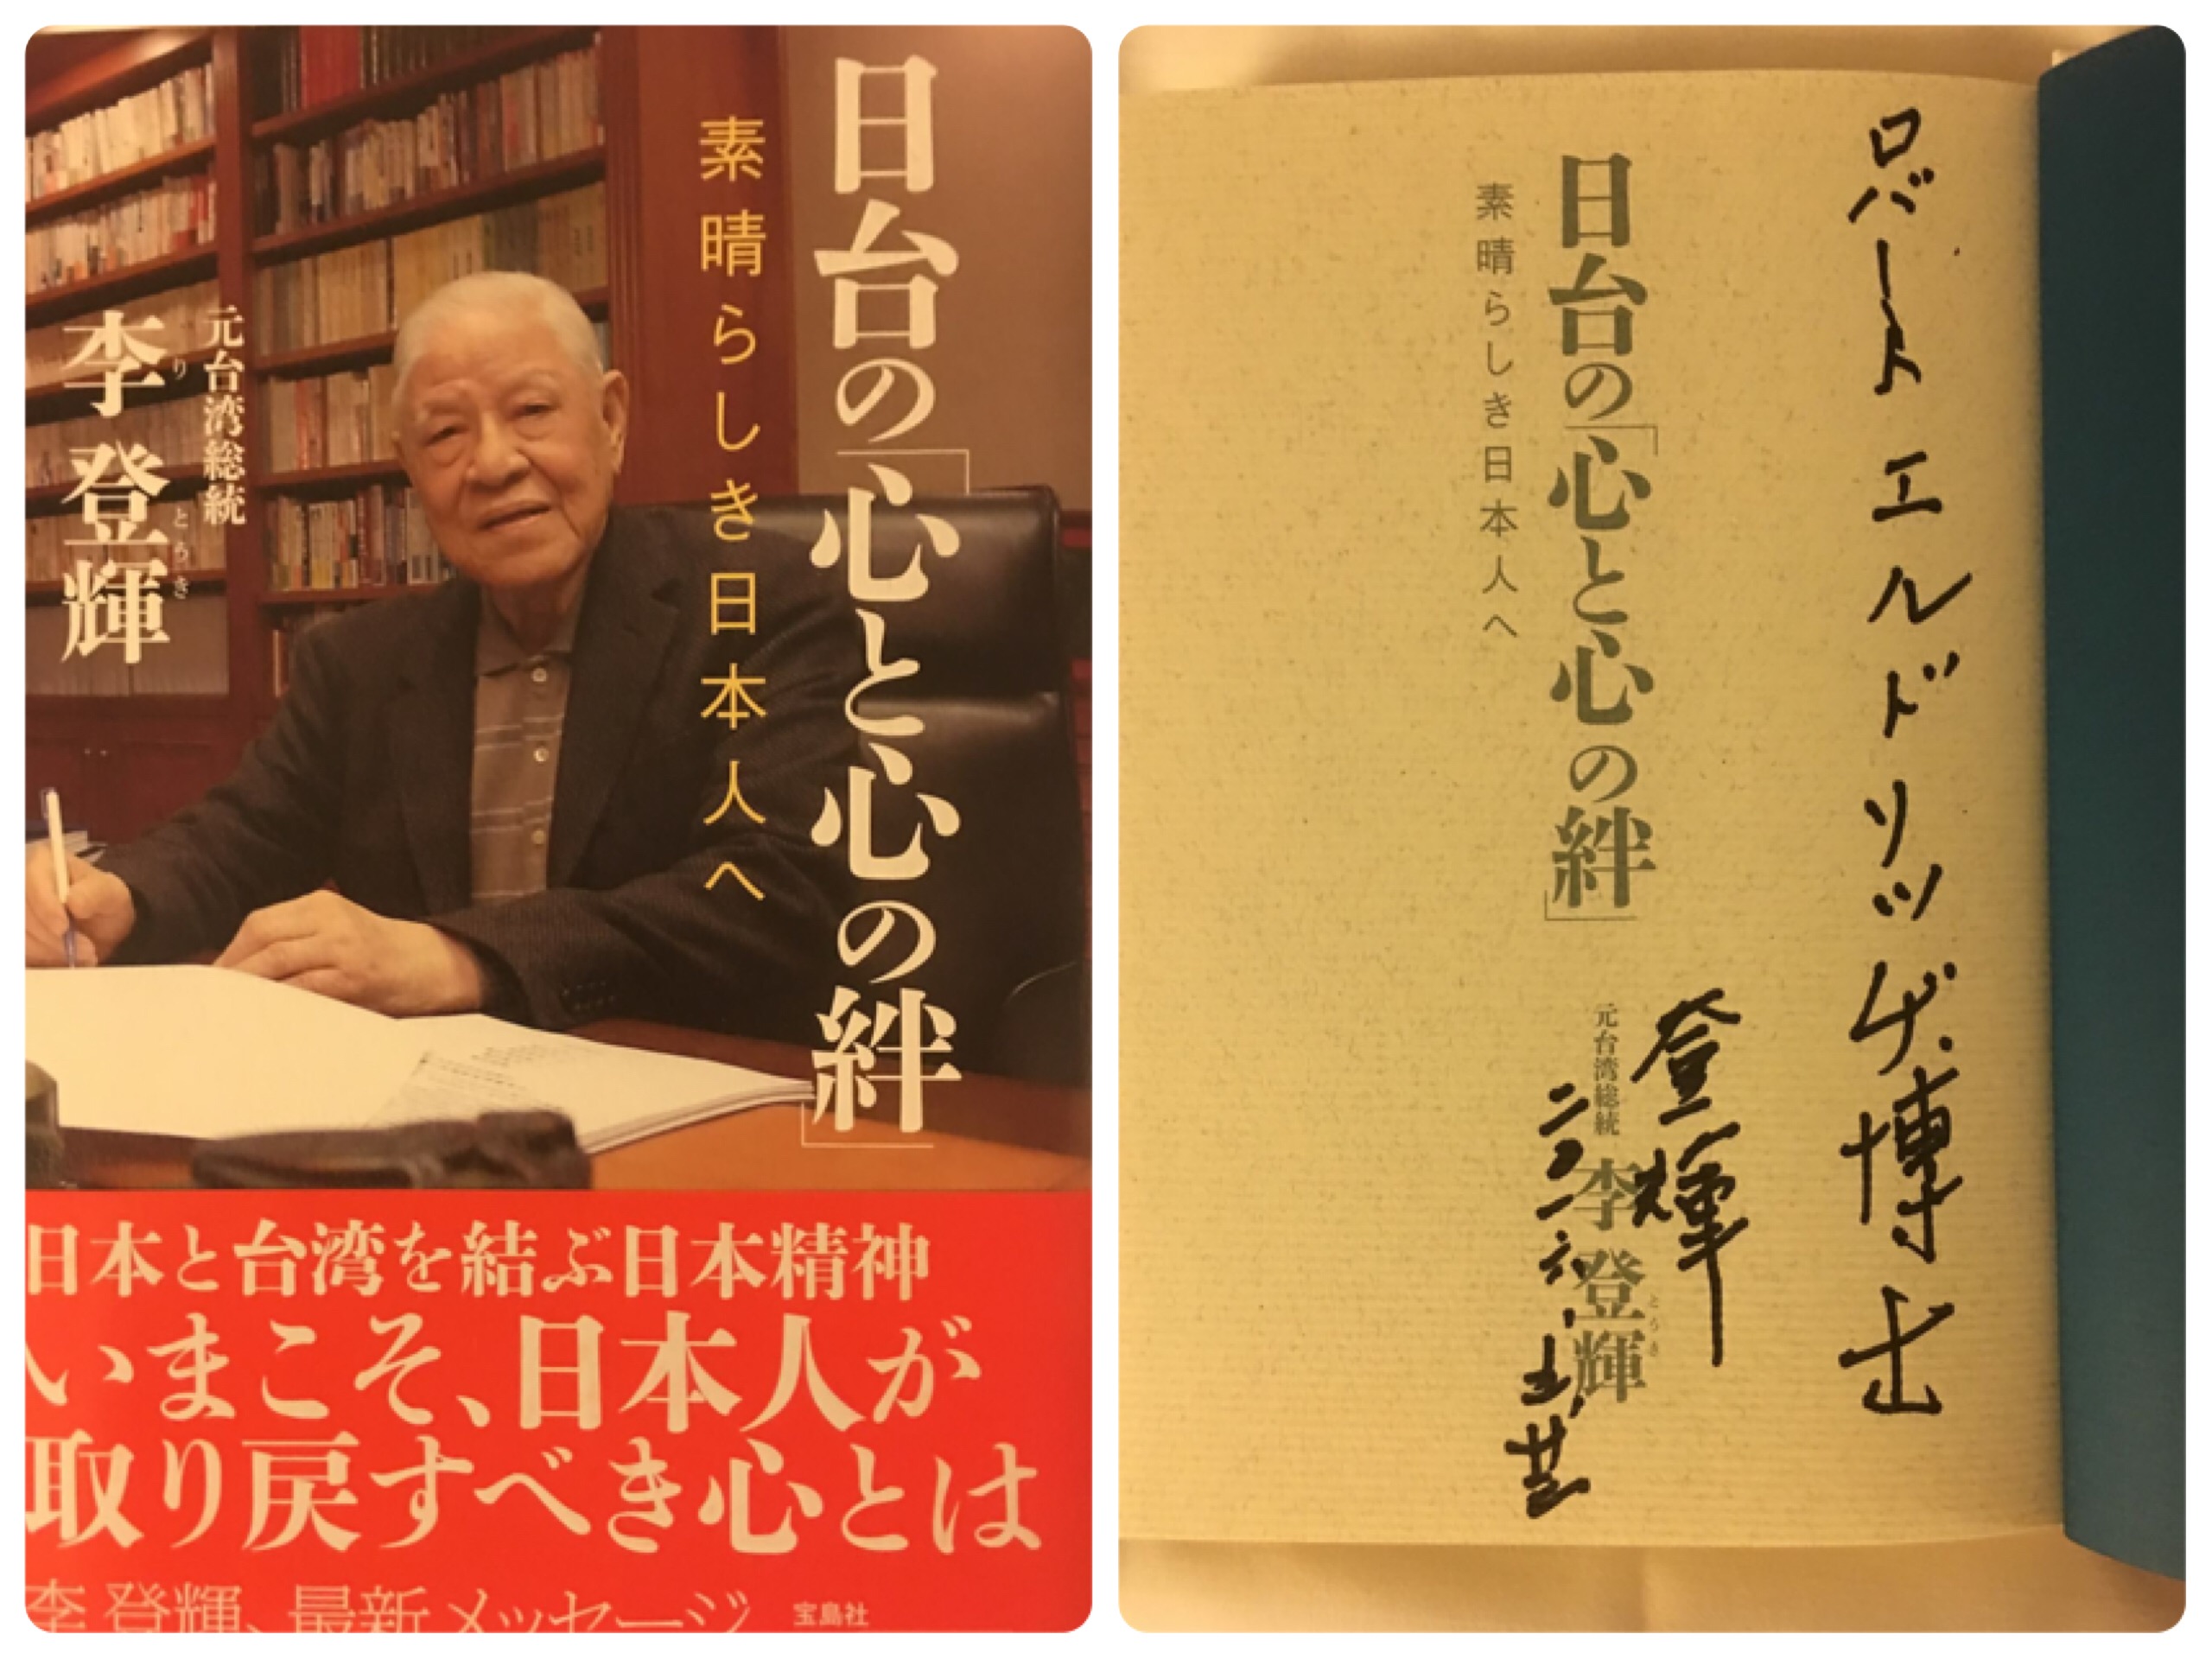 日台の「心と心の絆」
素晴らしき日本人へ
元台湾総統
李登輝
り とうき
日本と台湾を結ぶ日本精神
いまこそ、日本人が
取り戻すべき心とは
李登輝、最新メッセージ 宝島社
ロバートエルドリッヂ博士
日台の「心と心の絆」
素晴らしき日本人へ
登輝
元台湾総統 李登輝
とうき
二〇一六、